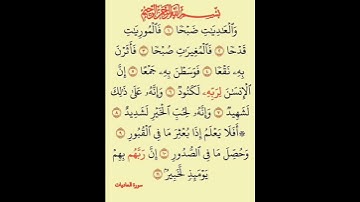 بِسْمِ اللَّهِ الرَّحْمَٰنِ الرَّحِيمِ
وَٱلۡعَٰدِيَٰتِ ضَبۡحٗا ١ فَٱلۡمُورِيَٰتِ
قَدۡحٗا ٢ فَٱلۡمُغِيرَٰتِ صُبۡحٗا ٣ فَأَثَرۡنَ
بِهِۦ نَقۡعٗا ٤ فَوَسَطۡنَ بِهِۦ جَمۡعًا ٥ إِنَّ
ٱلۡإِنسَٰنَ لِرَبِّهِۦ لَكَنُودٞ ٦ وَإِنَّهُۥ عَلَىٰ ذَٰلِكَ
لَشَهِيدٞ ٧ وَإِنَّهُۥ لِحُبِّ ٱلۡخَيۡرِ لَشَدِيدٌ ٨
۞ أَفَلَا يَعۡلَمُ إِذَا بُعۡثِرَ مَا فِي ٱلۡقُبُورِ ٩
وَحُصِّلَ مَا فِي ٱلصُّدُورِ ١٠ إِنَّ رَبَّهُم بِهِمۡ
يَوۡمَئِذٖ لَّخَبِيرُۢ ١١
سورة العاديات